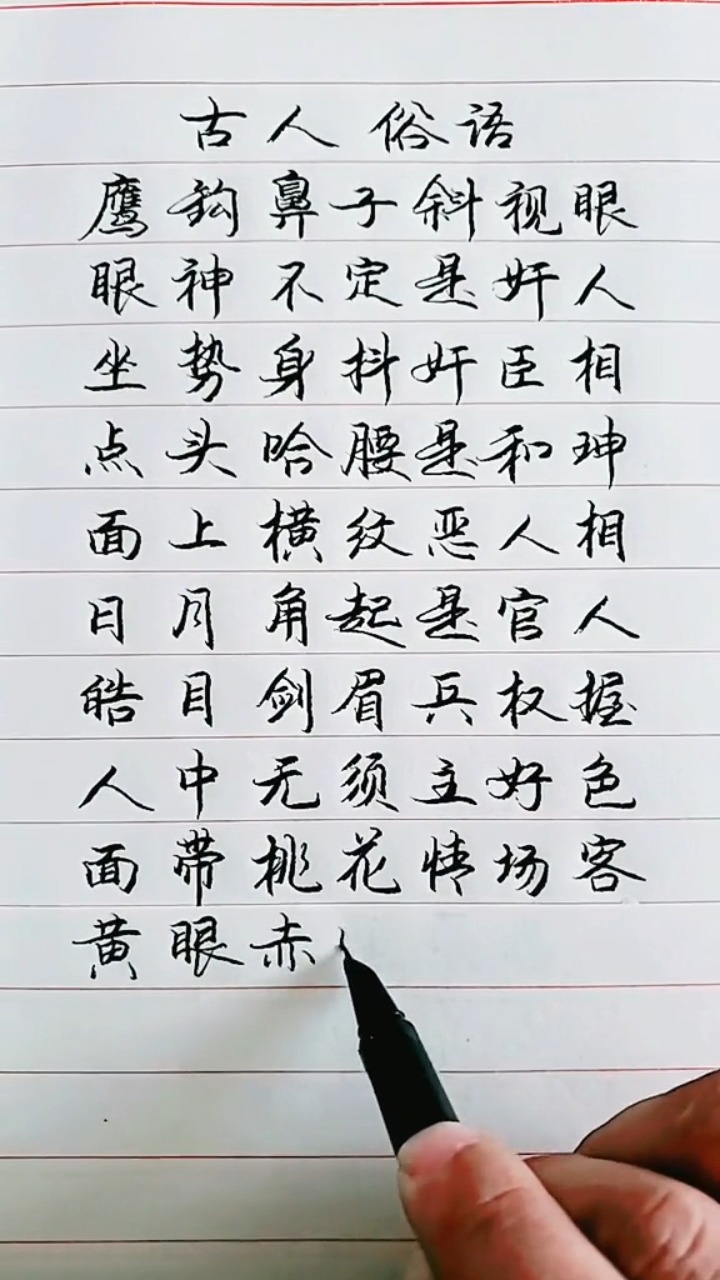 古人俗语
鹰鈎鼻子斜视眼
眼神不定是奸人
坐势身抖奸臣相
点头哈腰是和珅
面上横纹恶人相
日月角起是官人
皓目剑眉兵权握
人中无须主好色
面带桃花情场客
黄眼赤